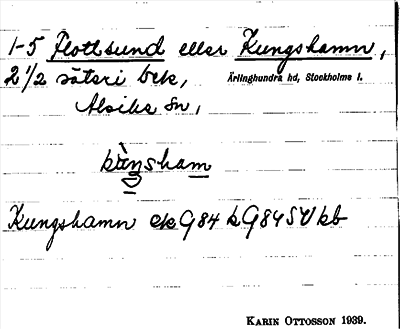 1-5 Flottsund eller Kungshamn,
2 1/2 säteri bek,
Ärlinghundra hd, Stockholms l.
Alsike sn,
kùnsham
Kungshamn ek G84 k G84 SV kb
KARIN OTTOSSON 1939.